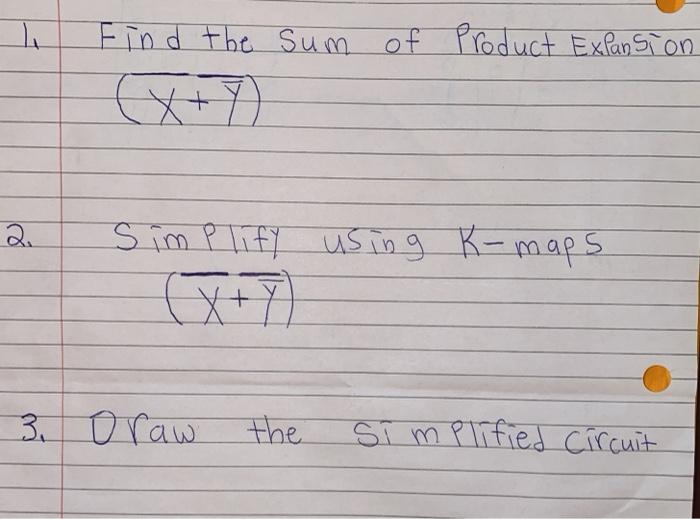 1. Find the Sum of Product Expansion
(X̅ ̅+̅ ̅Y̅̅)
2. Simplify using K-maps
(X̅ ̅+̅ ̅Y̅̅)
3. Draw the simplified circuit